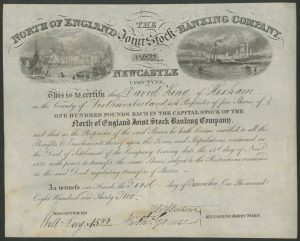 NORTH OF ENGLAND THE BANKING COMPANY
Joint Stock
NEWCASTLE
UPON TYNE.
This is to certify that David King of Hexham
in the County of Northumberland is Proprietor of five Shares of £
ONE HUNDRED POUNDS EACH IN THE CAPITAL STOCK OF THE
North of England Joint Stock Banking Company,
and that as the Proprietor of the said Shares he hath become entitled to all the
Benefits & Emoluments thereof upon the Terms and Regulations contained in
the Deed of Settlement of the Company bearing date the 15th day of Nov
1832 with power to transfer the same Shares subject to the Restrictions contained
in the said Deed regulating transfer of Shares
As witness our Hands the day of December One Thousand
Eight Hundred and Thirty Two.
REGISTERED
MANAGING DIRECTORS.